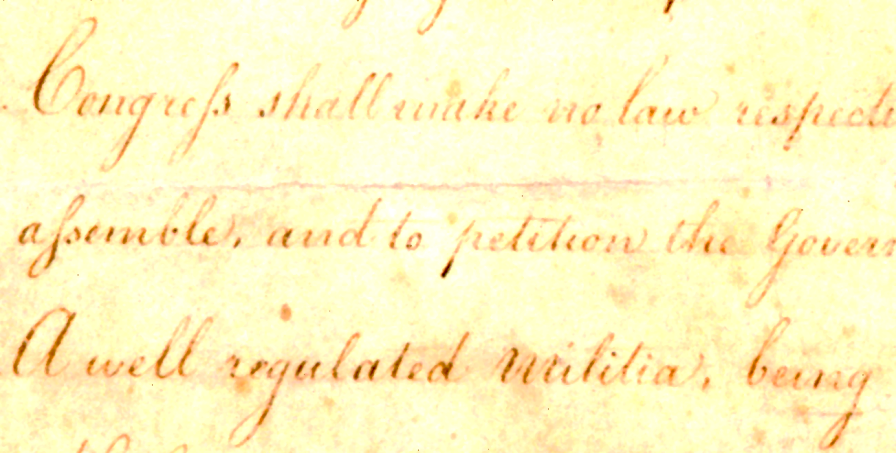 Congreſs shall make no law respecti
aſsemble, and to petition the Govern
A well regulated militia, being